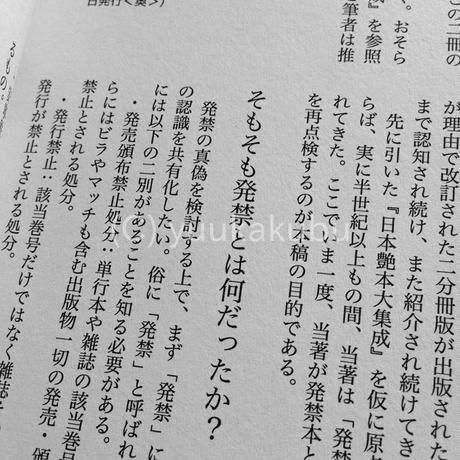 この二冊の
く。おそら
』を参照
筆者は推
日発行<奥>)
が理由で改訂された二分冊版が出版された
まで認知され続け、また紹介され続けてき
先に引いた『日本艶本大集成』を仮に原
らば、実に半世紀以上もの間、当著は「発禁
れてきた。ここでいま一度、当著が発禁本と
を再点検するのが本稿の目的である。
そもそも発禁とは何だったか?
発禁の真偽を検討する上で、まず「発禁」に
の認識を共有化したい。俗に「発禁」と呼ばれ
には以下の二別があることを知る必要がある。
・発売頒布禁止処分:単行本や雑誌の該当巻号
らにはビラやマッチも含む出版物一切の発売・頒
禁止とされる処分。
・発行禁止:該当巻号だけではなく雑誌そ
発行が禁止とされる処分。
るもの。
(C) yuurakubu